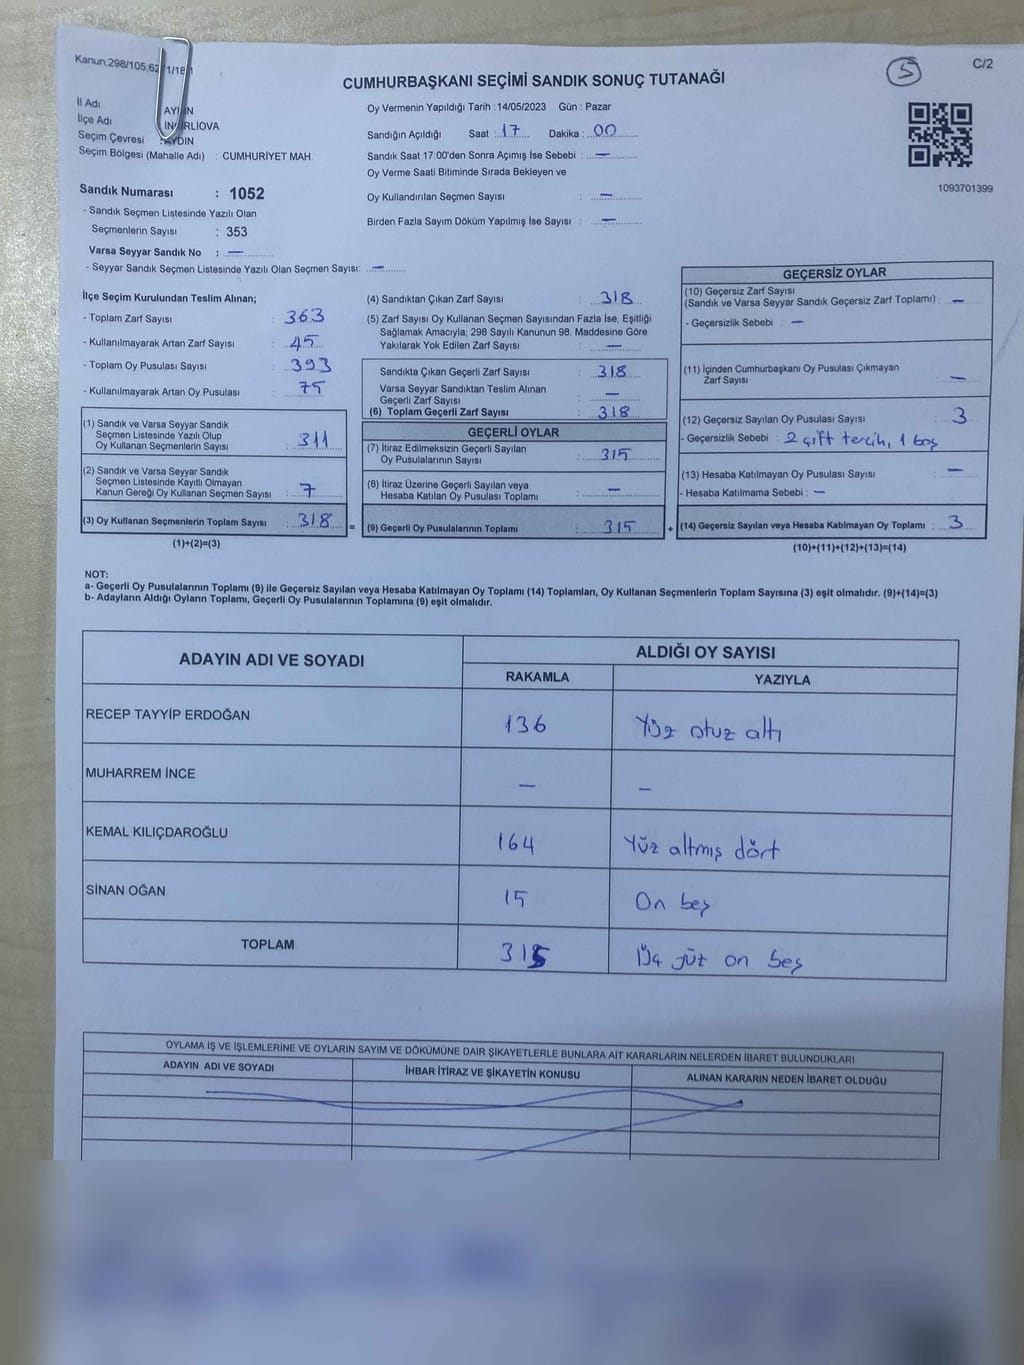 Kanun;298/105,62 1/18
5
C/2
CUMHURBAŞKANI SEÇİMİ SANDIK SONUÇ TUTANAĞI
İl Adı AYDIN
İlçe Adı İNCİRLİOVA
Seçim Çevresi : AYDIN
Seçim Bölgesi (Mahalle Adı) : CUMHURİYET MAH.
Oy Vermenin Yapıldığı Tarih : 14/05/2023 Gün : Pazar
Sandığın Açıldığı Saat : 17 Dakika : 00
Sandık Saat 17:00'den Sonra Açımış İse Sebebi : —
Oy Verme Saati Bitiminde Sırada Bekleyen ve
Oy Kullandırılan Seçmen Sayısı : —
Birden Fazla Sayım Döküm Yapılmış İse Sayısı : —
1093701399
Sandık Numarası : 1052
- Sandık Seçmen Listesinde Yazılı Olan
Seçmenlerin Sayısı : 353
Varsa Seyyar Sandık No : —
- Seyyar Sandık Seçmen Listesinde Yazılı Olan Seçmen Sayısı: —
İlçe Seçim Kurulundan Teslim Alınan;
- Toplam Zarf Sayısı : 363
- Kullanılmayarak Artan Zarf Sayısı : 45
- Toplam Oy Pusulası Sayısı : 393
- Kullanılmayarak Artan Oy Pusulası : 75
(1) Sandık ve Varsa Seyyar Sandık
Seçmen Listesinde Yazılı Olup
Oy Kullanan Seçmenlerin Sayısı : 311
(2) Sandık ve Varsa Seyyar Sandık
Seçmen Listesinde Kayıtlı Olmayan
Kanun Gereği Oy Kullanan Seçmen Sayısı : 7
(3) Oy Kullanan Seçmenlerin Toplam Sayısı : 318 =
(1)+(2)=(3)
(4) Sandıktan Çıkan Zarf Sayısı : 318
(5) Zarf Sayısı Oy Kullanan Seçmen Sayısından Fazla İse, Eşitliği
Sağlamak Amacıyla; 298 Sayılı Kanunun 98. Maddesine Göre
Yakılarak Yok Edilen Zarf Sayısı : —
Sandıkta Çıkan Geçerli Zarf Sayısı : 318
Varsa Seyyar Sandıktan Teslim Alınan
Geçerli Zarf Sayısı : —
(6) Toplam Geçerli Zarf Sayısı : 318
GEÇERLİ OYLAR
(7) İtiraz Edilmeksizin Geçerli Sayılan
Oy Pusulalarının Sayısı : 315
(8) İtiraz Üzerine Geçerli Sayılan veya
Hesaba Katılan Oy Pusulası Toplamı : —
(9) Geçerli Oy Pusulalarının Toplamı : 315 +
GEÇERSİZ OYLAR
(10) Geçersiz Zarf Sayısı
(Sandık ve Varsa Seyyar Sandık Geçersiz Zarf Toplamı) : —
- Geçersizlik Sebebi : —
(11) İçinden Cumhurbaşkanı Oy Pusulası Çıkmayan
Zarf Sayısı : —
(12) Geçersiz Sayılan Oy Pusulası Sayısı 3
- Geçersizlik Sebebi : 2 çift tercih, 1 boş
(13) Hesaba Katılmayan Oy Pusulası Sayısı : —
- Hesaba Katılmama Sebebi : —
(14) Geçersiz Sayılan veya Hesaba Katılmayan Oy Toplamı : 3
(10)+(11)+(12)+(13)=(14)
NOT:
a- Geçerli Oy Pusulalarının Toplamı (9) ile Geçersiz Sayılan veya Hesaba Katılmayan Oy Toplamı (14) Toplamları, Oy Kullanan Seçmenlerin Toplam Sayısına (3) eşit olmalıdır. (9)+(14)=(3)
b- Adayların Aldığı Oyların Toplamı, Geçerli Oy Pusulalarının Toplamına (9) eşit olmalıdır.
ADAYIN ADI VE SOYADI
ALDIĞI OY SAYISI
RAKAMLA YAZIYLA
RECEP TAYYİP ERDOĞAN 136 Yüz otuz altı
MUHARREM İNCE — —
KEMAL KILIÇDAROĞLU 164 Yüz altmış dört
SİNAN OĞAN 15 On beş
TOPLAM 315 Üç yüz on beş
OYLAMA İŞ VE İŞLEMLERİNE VE OYLARIN SAYIM VE DÖKÜMÜNE DAİR ŞİKAYETLERLE BUNLARA AİT KARARLARIN NELERDEN İBARET BULUNDUKLARI
ADAYIN ADI VE SOYADI İHBAR İTİRAZ VE ŞİKAYETİN KONUSU ALINAN KARARIN NEDEN İBARET OLDUĞU